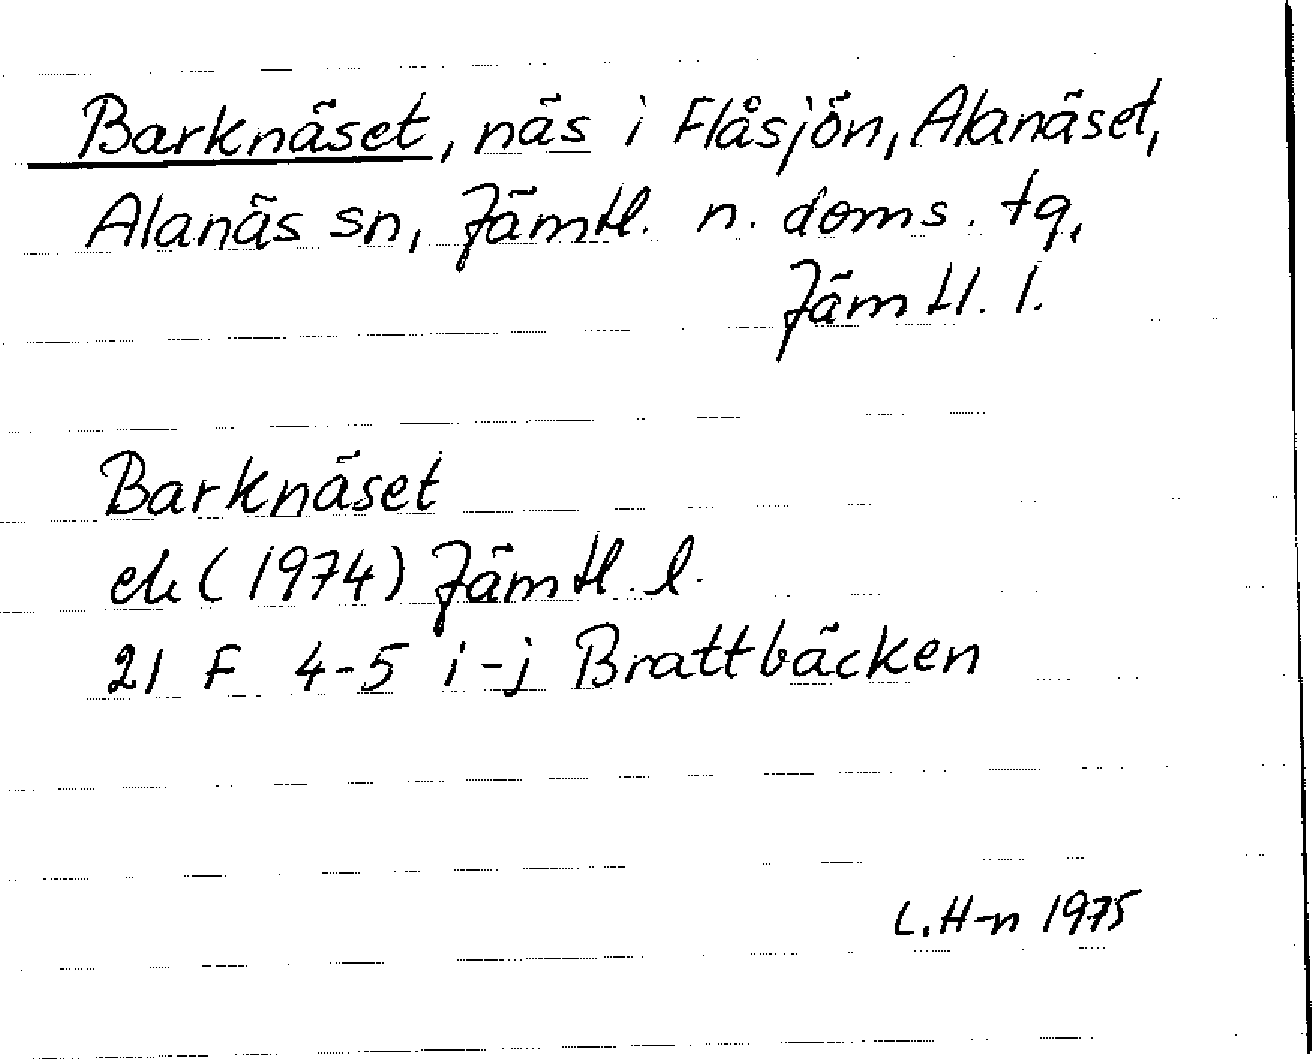 Barknäset, näs i Flåsjön, Alanäset,
Alanäs sn, Jämtl. n. doms. tg,
Jämtl. l.
Barknäset
ek (1974) Jämtl. l.
21 F 4-5 i-j Brattbäcken
L. H-n 1975